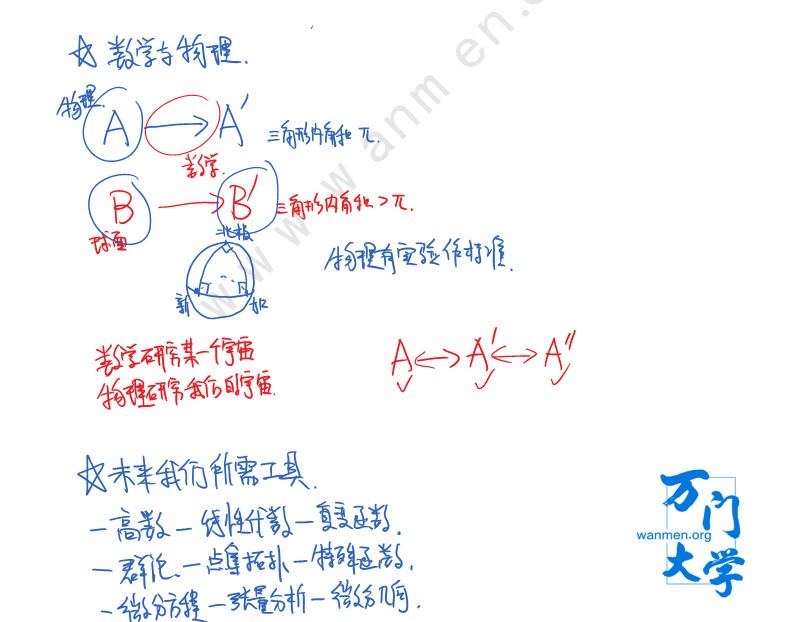 ☆ 数学与物理.
物理
A → A′ 三角形内角和 π.
数学.
B → B′ 三角形内角和 > π.
球面
北极
物理有实验作标准.
新 加
数学研究某一个宇宙
物理研究我们的宇宙.
A ↔ A′ ↔ A″
☆ 未来我们所需工具.
一高数 一线性代数 一复变函数.
一群论 一点集拓扑 一特殊函数.
一微分方程 一张量分析 一微分几何.
万门大学
wanmen.org